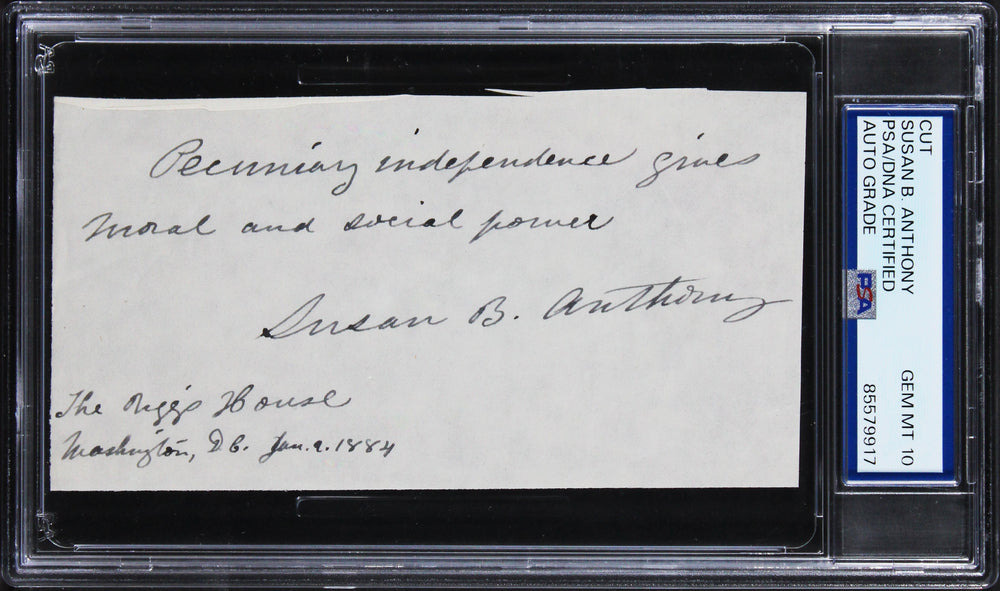 Pecuniary independence gives
moral and social power
Susan B. Anthony
The Riggs House
Washington, D.C. Jan. 9. 1884
CUT
SUSAN B. ANTHONY
PSA/DNA CERTIFIED
AUTO GRADE
GEM MT 10
85579917
PSA